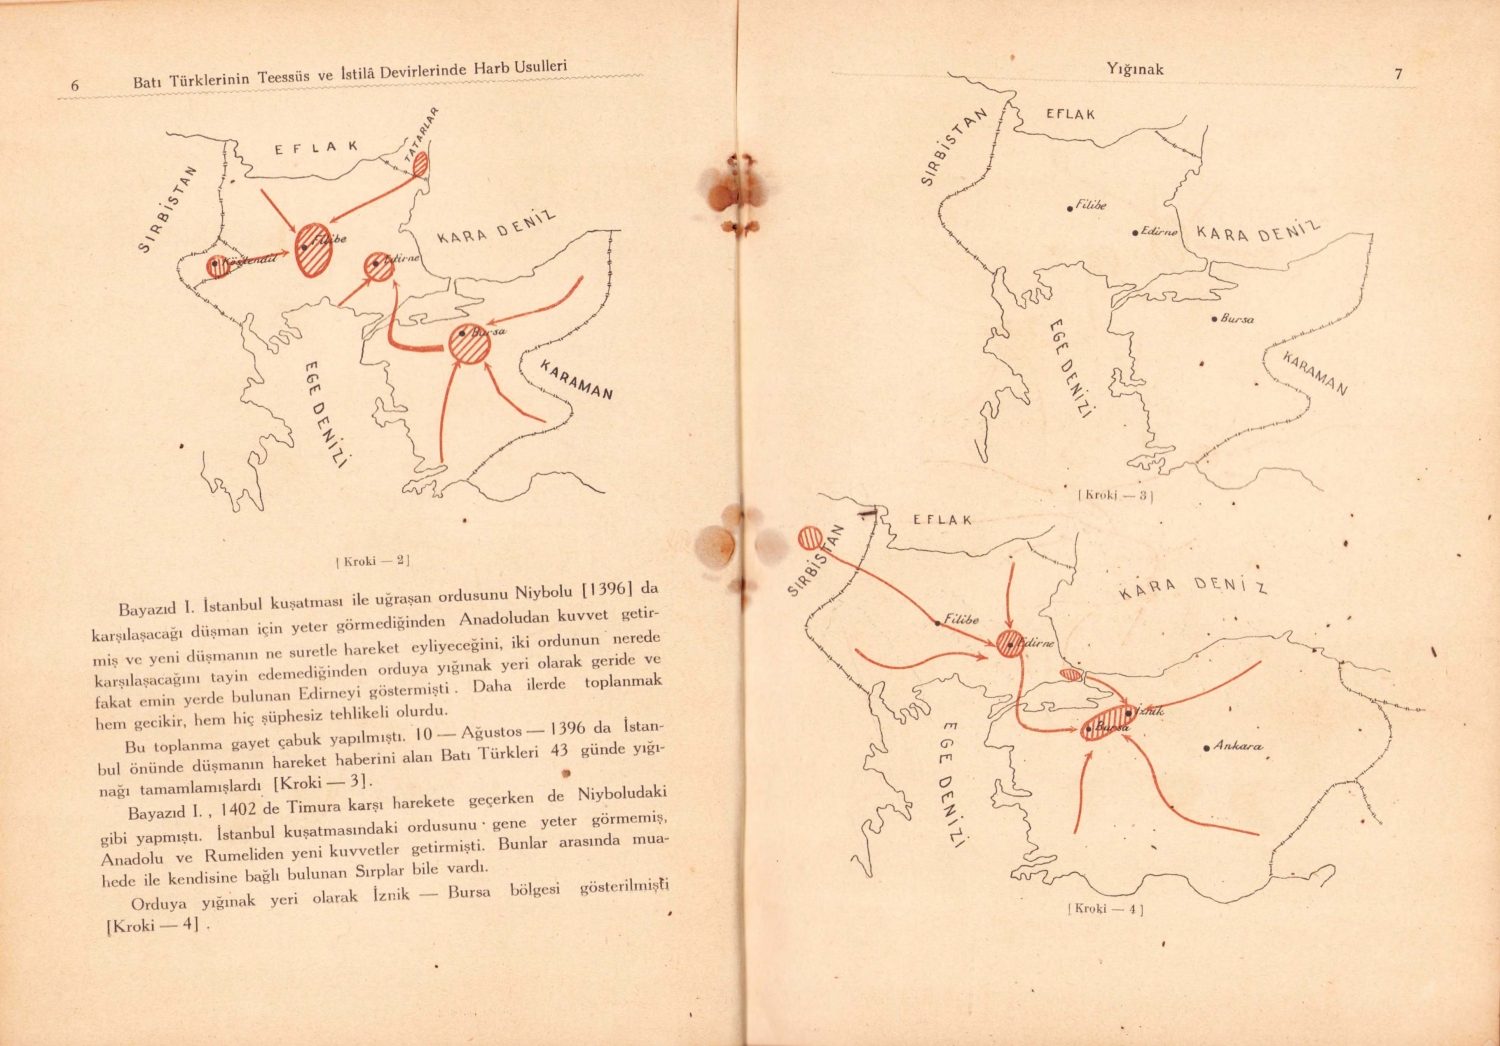 6
Batı Türklerinin Teessüs ve İstilâ Devirlerinde Harb Usulleri
EFLAK
TATARLAR
SIRBİSTAN
KARA DENİZ
Filibe
Köstendil
Edirne
Bursa
EGE DENİZİ
KARAMAN
[Kroki — 2]
Bayazıd I. İstanbul kuşatması ile uğraşan ordusunu Niybolu [1396] da
karşılaşacağı düşman için yeter görmediğinden Anadoludan kuvvet getir-
miş ve yeni düşmanın ne suretle hareket eyliyeceğini, iki ordunun nerede
karşılaşacağını tayin edemediğinden orduya yığınak yeri olarak geride ve
fakat emin yerde bulunan Edirneyi göstermişti. Daha ilerde toplanmak
hem gecikir, hem hiç şüphesiz tehlikeli olurdu.
Bu toplanma gayet çabuk yapılmıştı. 10 — Ağustos — 1396 da İstan-
bul önünde düşmanın hareket haberini alan Batı Türkleri 43 günde yığı-
nağı tamamlamışlardı [Kroki — 3].
Bayazıd I. , 1402 de Timura karşı harekete geçerken de Niyboludaki
gibi yapmıştı. İstanbul kuşatmasındaki ordusunu gene yeter görmemiş,
Anadolu ve Rumeliden yeni kuvvetler getirmişti. Bunlar arasında mua-
hede ile kendisine bağlı bulunan Sırplar bile vardı.
Orduya yığınak yeri olarak İznik — Bursa bölgesi gösterilmişti
[Kroki — 4] .
Yığınak
7
EFLAK
SIRBİSTAN
Filibe
Edirne
KARA DENİZ
Bursa
EGE DENİZİ
KARAMAN
[Kroki — 3]
EFLAK
SIRBİSTAN
KARA DENİZ
Filibe
Edirne
İznik
Bursa
Ankara
EGE DENİZİ
[Kroki — 4]